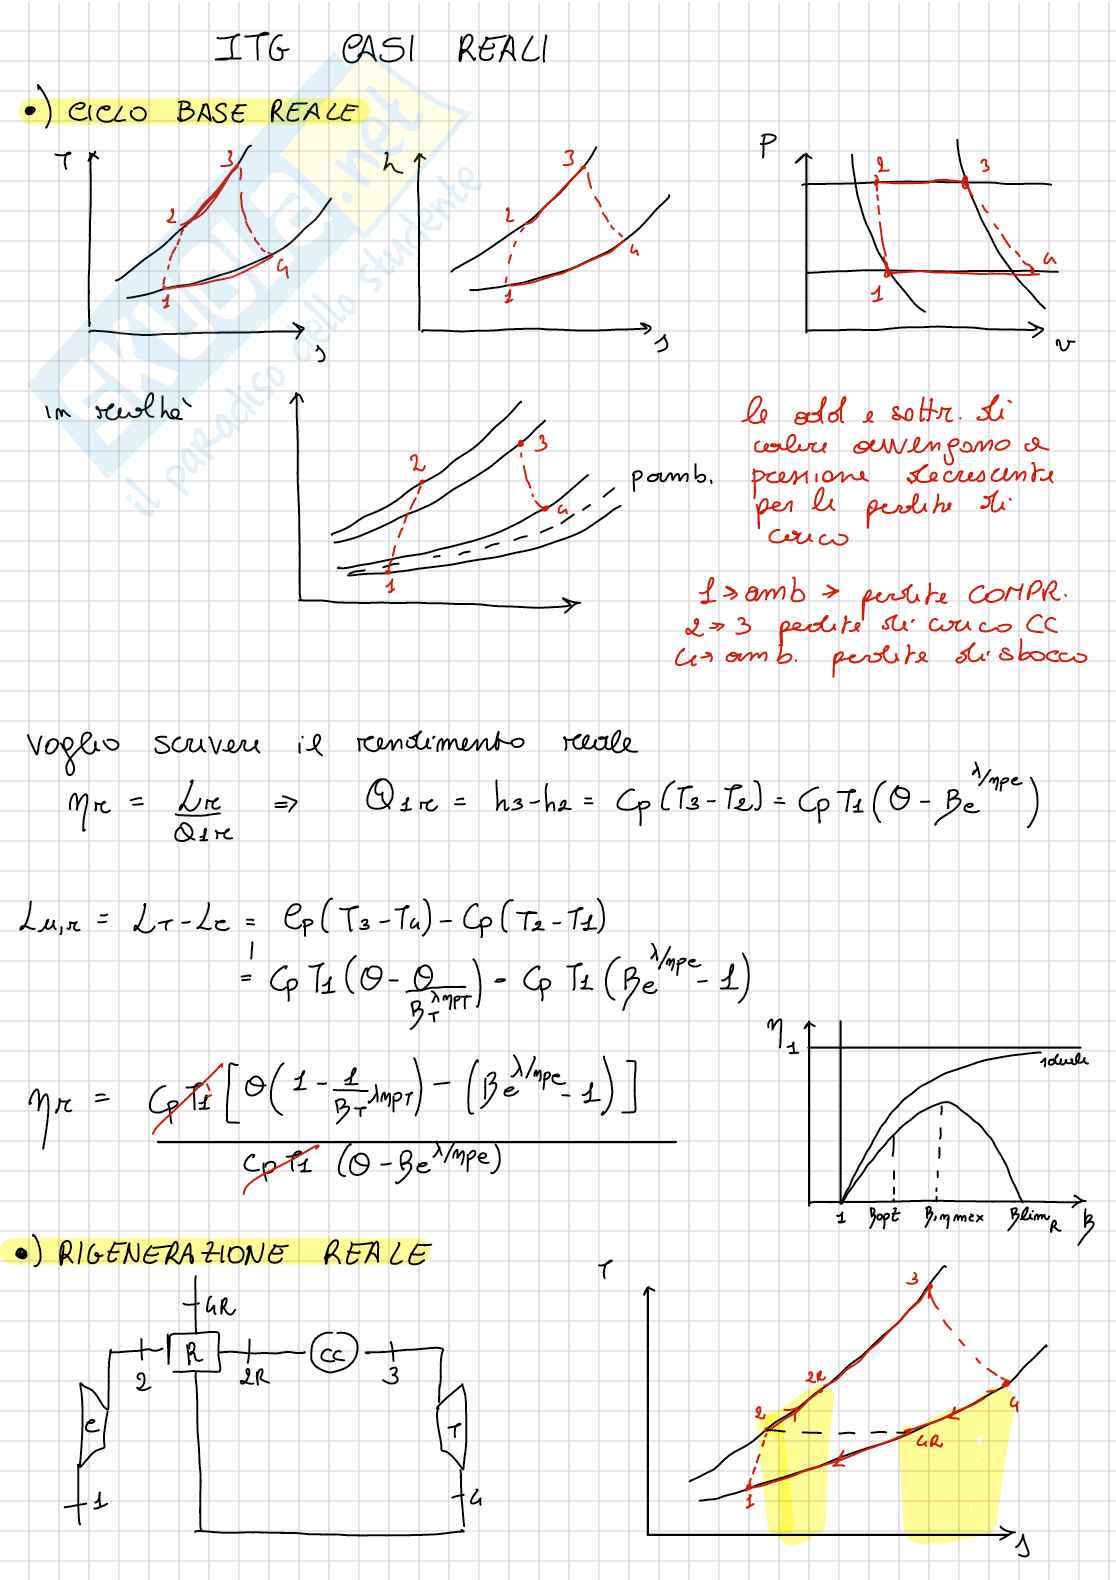 ITG CASI REALI
•) CICLO BASE REALE
T
3
2
1
4
s
h
3
2
1
4
s
P
2
3
1
4
v
SKUOLA.net
il paradiso dello studente
in realtà
2
3
4
1
pamb.
le add e sottr. di
calore avvengono a
pressione decrescente
per le perdite di
carico
1 → amb → perdite COMPR.
2 → 3 perdite di carico CC
4 → amb. perdite di sbocco
voglio scrivere il rendimento reale
ηr = Lr / Q1r ⇒ Q1r = h3 - h2 = Cp (T3 - T2) = Cp T1 (θ - βc^λ/ηpc)
Lu,r = LT - Lc = Cp (T3 - T4) - Cp (T2 - T1)
= Cp T1 (θ - θ / βT^ληpT) - Cp T1 (βc^λ/ηpc - 1)
ηr = Cp T1 [θ (1 - 1 / βT^ληpT) - (βc^λ/ηpc - 1)] / Cp T1 (θ - βc^λ/ηpc)
η
1
ideale
1 βopt β,ηmax βlim R β
•) RIGENERAZIONE REALE
4R
R
CC
2
2R
3
C
T
1
4
T
3
2R
2
4
4R
1
s